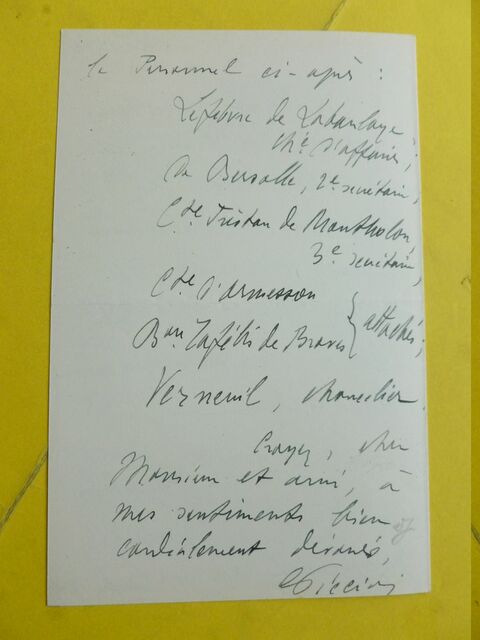 le Personnel ci-après :
Lefebvre de Laboulaye
ché d'affaires ;
de Bersolle, 2e secrétaire,
Cte Tristan de Montholon,
3e secrétaire,
Cte d'Ormesson
Bon Lafélis de Brаves } attachés ;
Verneuil, chancelier.
Croyez, cher
Monsieur et ami, à
mes sentiments bien
cordialement dévoués,